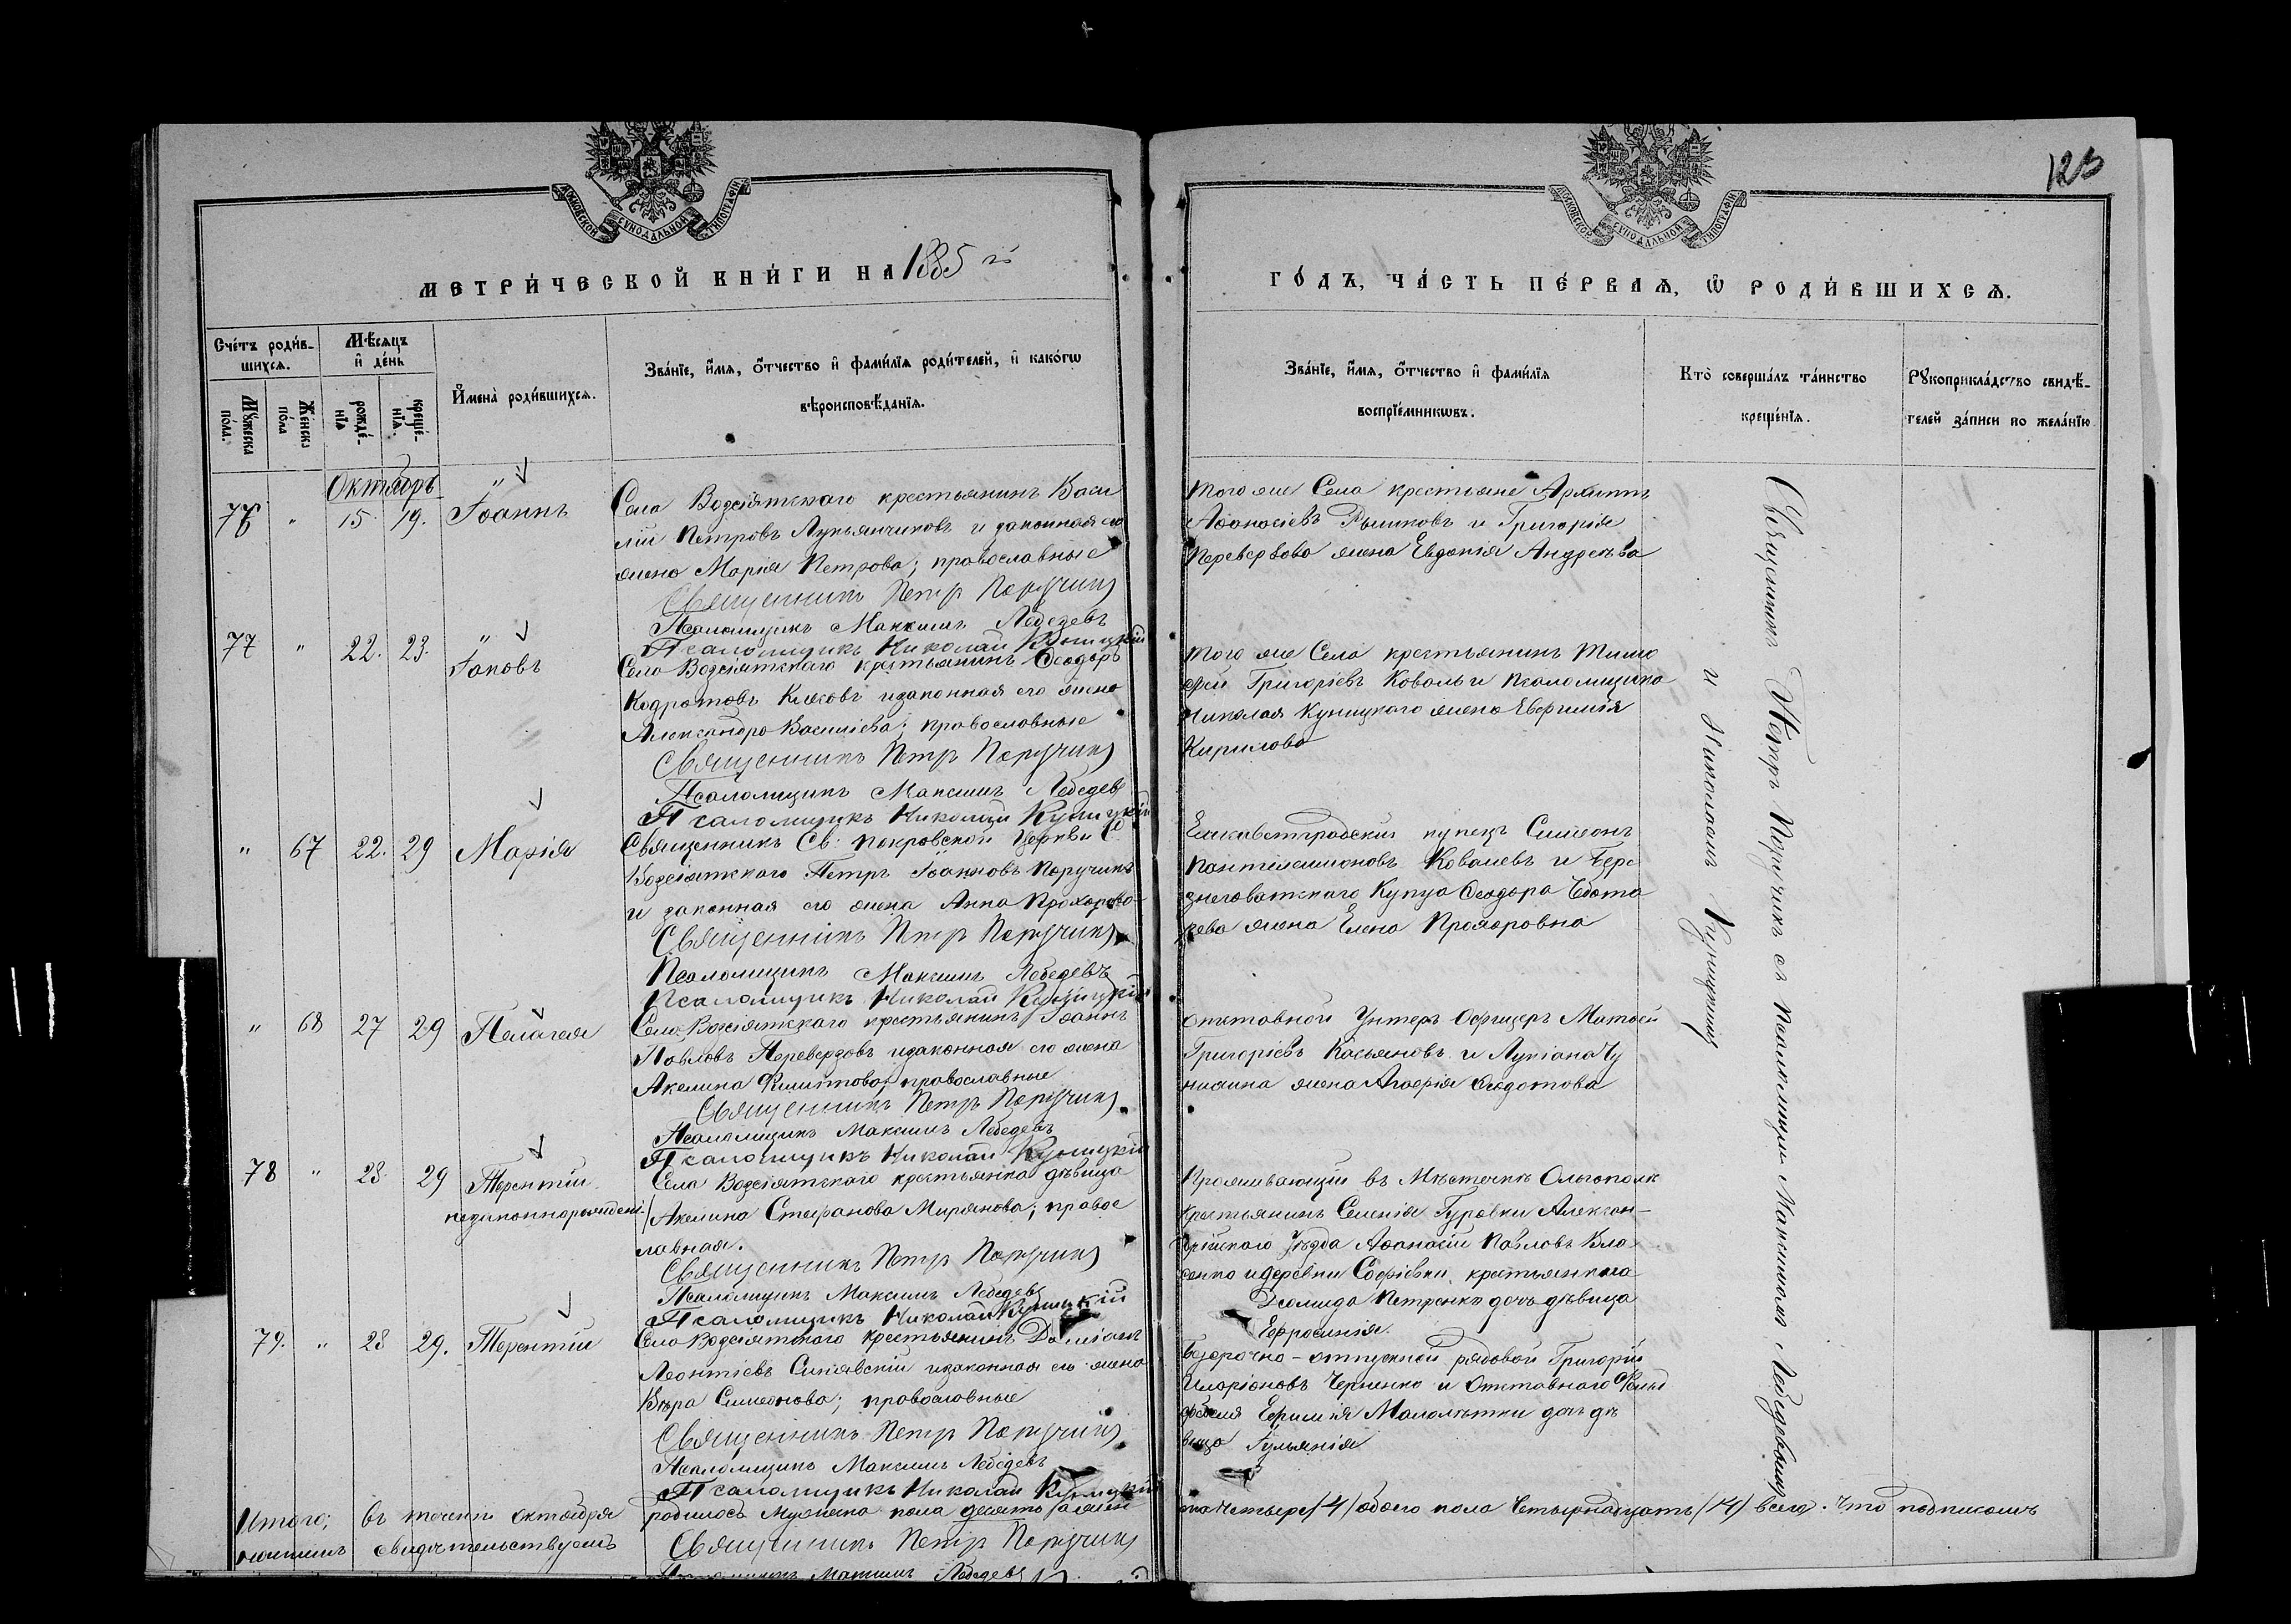 125
МОСКОВСКОЙ СѴНОДАЛЬНОЙ ТИПОГРАФІИ
МОСКОВСКОЙ СѴНОДАЛЬНОЙ ТИПОГРАФІИ
МЕТРИ́ЧЕСКОЙ КНИ́ГИ НА 1885 й
ГО́ДЪ, ЧА́СТЬ ПЕ́РВАѦ, Ѿ РОДИ́ВШИХСѦ.
Сче́тъ роди́в-
шихсѧ.
Мѣ́сѧцъ
и҆ де́нь
Мꙋ́жеска по́ла.
Же́нска по́ла
рожде́-нїѧ
креще́-нїѧ.
И҆мена̀ роди́вшихсѧ.
Зва́нїе, и҆́мѧ, ѻ҆́тчество и҆ фами́лїѧ роди́телей, и҆ како́гѡ
вѣроисповѣ́данїѧ.
Зва́нїе, и҆́мѧ, ѻ҆́тчество и҆ фами́лїѧ
воспрїе́мникѡвъ.
Кто̀ соверша́лъ та́инство
креще́нїѧ.
Рꙋкоприкла́дство свидѣ́-
телей за́писи по жела́нїю
Октябрь
76 " 15. 19. Іоаннъ
Села Возсіятскаго крестьянинъ Васи
лій Петровъ Лукьянчиковъ и законная его
жена Марія Петрова; православные
Священникъ Петр Поручикъ
Псаломщикъ Максимъ Лебедевъ
Псаломщикъ Николай Куницкій
того же Села крестьяне Архипъ
Афанасіевъ Рышковъ и Григорія
Перевервова жена Евдокія Андреева
77 " 22. 23. Іаковъ
Села Возсіятскаго крестьянинъ Феодоръ
Кодратовъ Клековъ и законная его жена
Александра Василіева; православные
Священникъ Петр Поручикъ
Псаломщикъ Максимъ Лебедевъ
Псаломщикъ Николай Куницкій
того же Села крестьянинъ Тимо
фей Григоріевъ Коваль и Псаломщика
Николая Куницкого жена Евфимія
Кирилова
" 67 22. 29 Марія
Священникъ Св. Покровской Церкви С.
Возсіятского Петръ Іоанновъ Поручикъ
и законная его жена Анна Прохорова
Священникъ Петр Поручикъ
Псаломщикъ Максимъ Лебедевъ
Псаломщикъ Николай Куницкій
Елисаветградскій купецъ Симеонъ
Пантелеимоновъ Ковалевъ и Бере
знеговатского Купца Феодора Чебота
рева жена Елена Прохоровна
" 68 27 29 Пелагея
Села Возсіятскаго крестьянинъ Іоаннъ
Павловъ Перевервовъ и законная его жена
Акелина Филиппова; православные
Священникъ Петръ Поручикъ
Псаломщикъ Максимъ Лебедевъ
Псаломщикъ Николай Куницкій
отставной Унтеръ Офицеръ Матфей
Григоріевъ Касьяновъ и Лукіана Чу
жена Агафія Феодотова
78 " 28 29 Терентій
незаконнорожден.
Села Возсіятскаго крестьянка дѣвица
Акелина Стефанова Мирянова; правос
лавная.
Священникъ Петр Поручикъ
Псаломщикъ Максимъ Лебедевъ
Псаломщикъ Николай Куницкій
Проживающій въ Мѣстечкѣ Ольгополѣ
крестьянинъ Селенія Гуровки Алексан-
дрійскаго уѣзда Афанасій Павловъ Вла
сенко и деревни Софіевки крестьянина
Діомида Петренка дочь дѣвица
Ефросинія.
79. " 28 29. Терентій
Села Возсіятского крестьянинъ Даміанъ
Леонтіевъ Синявскій и законная его жена
Вѣра Симеонова; православные
Священникъ Петр Поручикъ
Псаломщикъ Максимъ Лебедевъ
Псаломщикъ Николай Куницкій
Безсрочно-отпускной рядовой Григорій
Иларіоновъ Черненко и отставного Фельд
фебеля Ефимія Малолѣтки дочь дѣ
вица Іуліанія
Священникъ Петръ Поручикъ съ Псаломщиками Максимомъ Лебедевымъ
и Николаемъ Куницкимъ
Итого; въ теченіи октября родилось Мужеска пола десять а жен
ска четыре /4/ обоего пола Четырнадцать /14/ всего. Что подписомъ
нашимъ свидетельствуемъ Священникъ Петр Поручикъ
Псаломщикъ Максимъ Лебедевъ